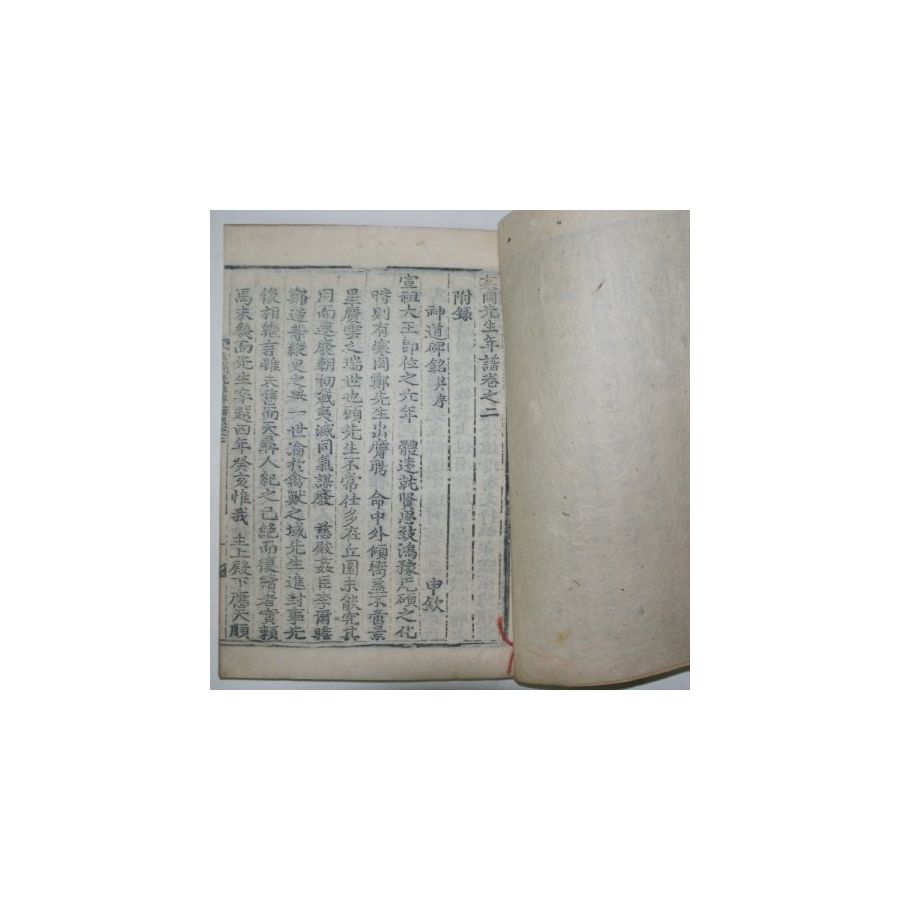 寒岡先生年譜卷之二
附錄
神道碑銘并序 申欽
宣祖大王卽位之六年 體遠說賢思致鴻豫厖碩之化
時則有寒岡鄭先生出膺聘 命中外傾嚮盖不啻景
星慶雲之瑞世也顧先生不常仕多在丘園未能究其
用而逮廢朝初戕夷滅同氣謀廢 慈殿姦臣李爾瞻
鄭造等 之 一世淪於禽獸之域先生進封事先
後相 言雖未信而天彝人紀之已絶而復續者實賴
焉未幾而先生卒越四年癸亥惟我 主上殿下應天順